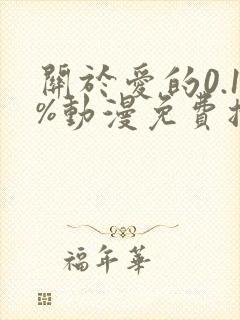 關於愛的0.1
%動漫免費播
福年華